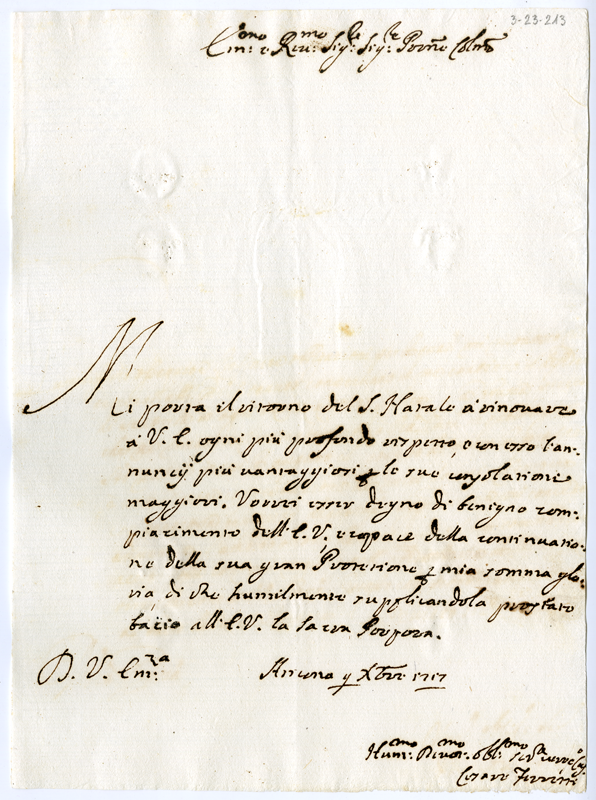 3-23-213
Em:mo e Rev:mo Sig:re Sig:re Prōne Colmō
Mi porta il ritorno del S. Natale à rinovare
à V. E. ogni più profondo rispetto, e con esso l'an-
nuncij più vantaggiosi p le sue consolationi
maggiori. Vorrei esser degno di benigno com-
piacimento dell'E. V., e capace della continuatio-
ne della sua gran Protetione p mia somma glo-
ria, di che humilmente supplicandola prostrato
bacio all'E. V. la Sacra Porpora.
D. V. Em:za Ancona 9 Xbre 1717
Hum:mo Devot:mo obl:mo ser:re
Cesare Ferretti